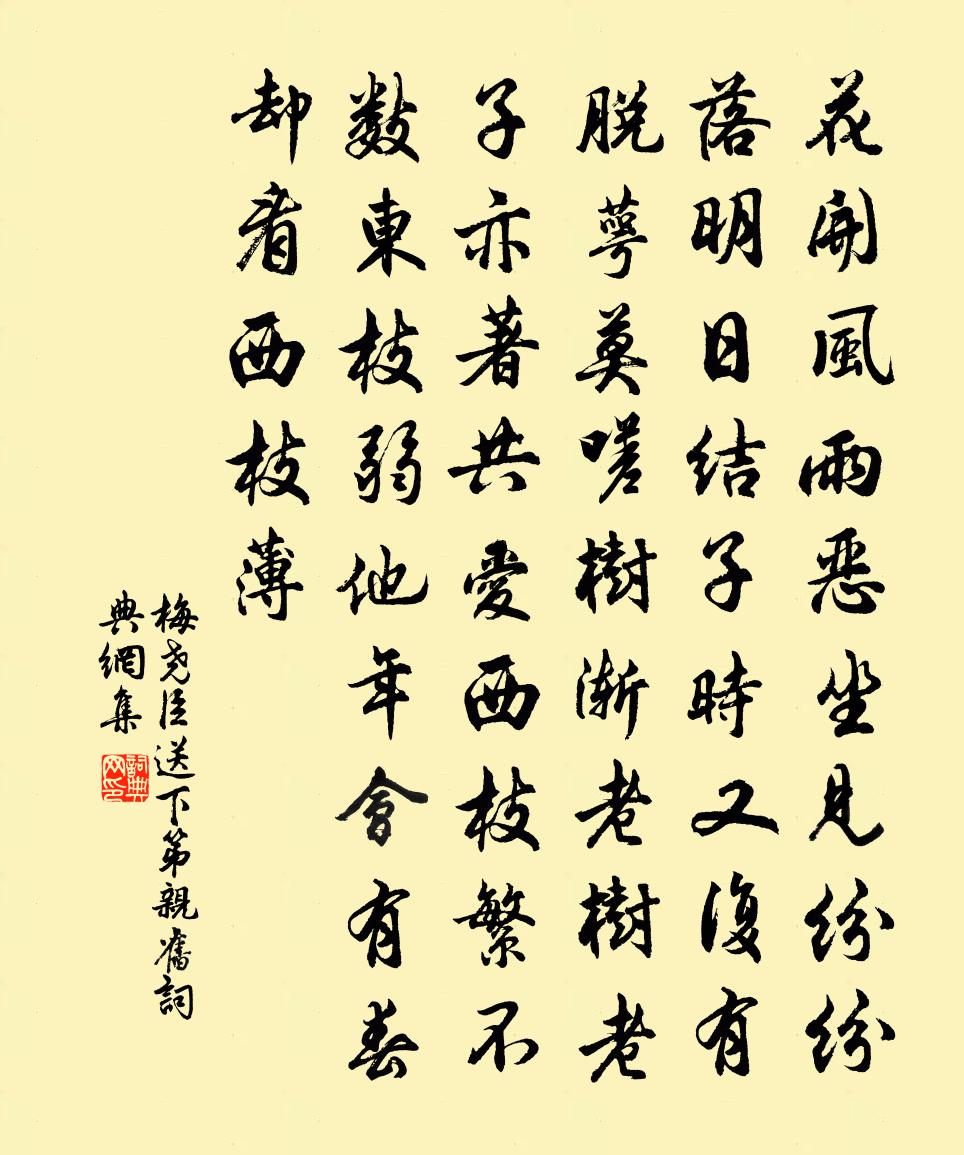 花開風雨惡坐見紛紛
落明日結子時又復有
脫萼莫嗟樹漸老樹老
子亦著共愛西枝繁不
數東枝弱他年會有春
却看西枝薄
梅堯臣送下第親舊詞
典網集
詞典
网印